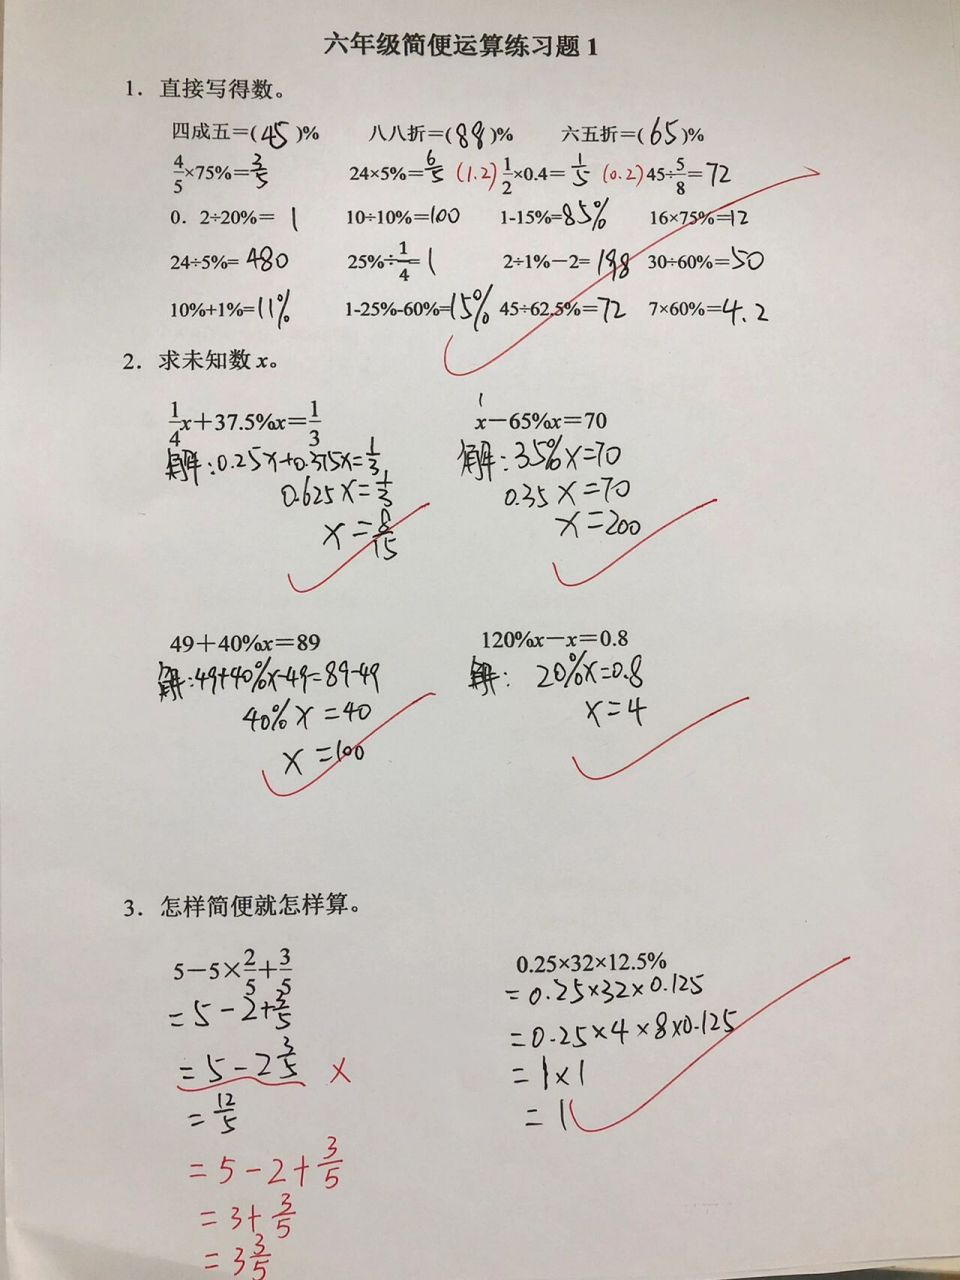 六年级简便运算练习题 1
1．直接写得数。
四成五=(45)% 八八折=(88)% 六五折=(65)%
4/5×75%=3/5 24×5%=6/5 (1.2) 1/2×0.4=1/5 (0.2) 45÷5/8=72
0．2÷20%=1 10÷10%=100 1-15%=85% 16×75%=12
24÷5%=480 25%÷1/4=1 2÷1%－2=198 30÷60%=50
10%+1%=11% 1-25%-60%=15% 45÷62.5%=72 7×60%=4.2
2．求未知数 x。
1/4x＋37.5%x＝1/3 x－65%x＝70
1
解:0.25x+0.375x=1/3 解:35%x=70
0.625x=1/3 0.35x=70
x=8/15 x=200
49＋40%x＝89 120%x－x＝0.8
解:49+40%x-49=89-49 解: 20%x=0.8
40%x=40 x=4
x=100
3．怎样简便就怎样算。
5－5×2/5＋3/5 0.25×32×12.5%
=5-2+3/5 =0.25×32×0.125
=5-2 3/5 × =0.25×4×8×0.125
=12/5 =1×1
=5-2+3/5 =1
=3+3/5
=3 3/5